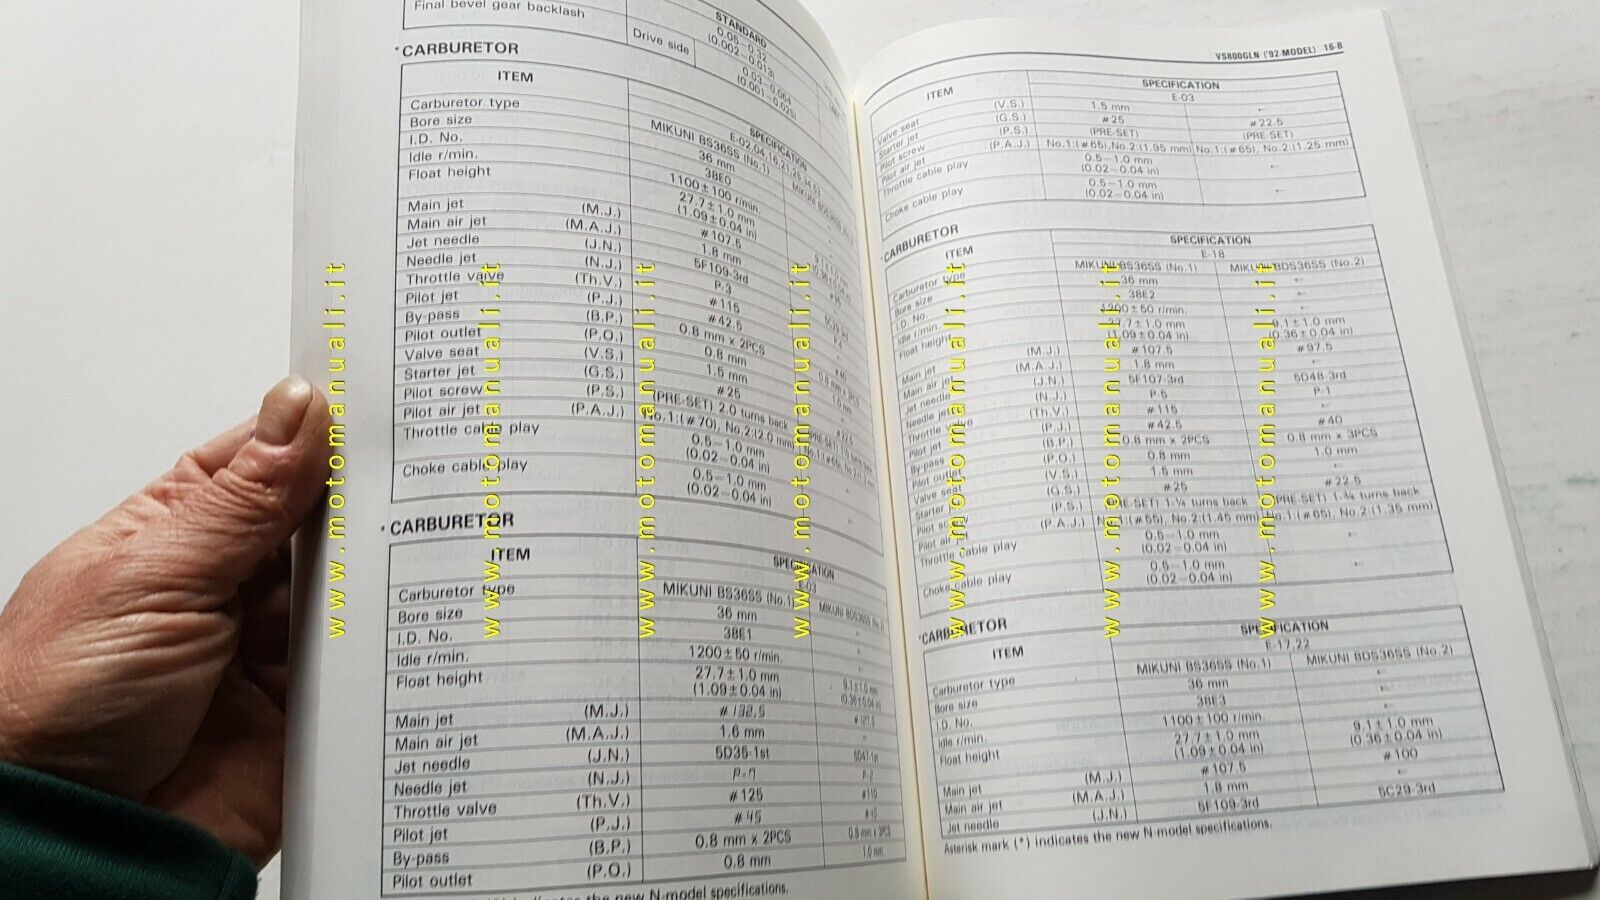 Final bevel gear backlash
STANDARD
0.05–0.32
(0.002–0.013)
Drive side
0.03–0.064
(0.001–0.025)
*CARBURETOR
ITEM
SPECIFICATION
E-02,04,16,21,25,34,53
Carburetor type MIKUNI BS36SS (No.1)
Bore size 36 mm
I.D. No. 38E0
Idle r/min. 1100±100 r/min.
Float height 27.7±1.0 mm
(1.09±0.04 in)
Main jet (M.J.) #107.5
Main air jet (M.A.J.) 1.8 mm
Jet needle (J.N.) 5F109-3rd
Needle jet (N.J.) P-3
Throttle valve (Th.V.) #115
Pilot jet (P.J.) #42.5
By-pass (B.P.) 0.8 mm x 2PCS
Pilot outlet (P.O.) 0.8 mm
Valve seat (V.S.) 1.5 mm
Starter jet (G.S.) #25
Pilot screw (P.S.) (PRE-SET) 2.0 turns back
Pilot air jet (P.A.J.) No.1:(#70), No.2:(2.0 mm)
Throttle cable play 0.5–1.0 mm
(0.02–0.04 in)
Choke cable play 0.5–1.0 mm
(0.02–0.04 in)
*CARBURETOR
ITEM SPECIFICATION
E-03
Carburetor type MIKUNI BS36SS (No.1)
Bore size 36 mm
I.D. No. 38E1
Idle r/min. 1200±50 r/min.
Float height 27.7±1.0 mm 9.1±1.0 mm
(1.09±0.04 in) (0.36±0.04 in)
Main jet (M.J.) #132.5
Main air jet (M.A.J.) 1.6 mm
Jet needle (J.N.) 5D35-1st
Needle jet (N.J.)
Throttle valve (Th.V.) #125 #110
Pilot jet (P.J.) #45
By-pass (B.P.) 0.8 mm x 2PCS 0.8 mm x 3PCS
Pilot outlet (P.O.) 0.8 mm 1.0 mm
the new N-model specifications.
VS800GLN ('92-MODEL) 16-8
ITEM SPECIFICATION
E-03
Valve seat (V.S.) 1.5 mm ←
Starter jet (G.S.) #25 #22.5
Pilot screw (P.S.) (PRE-SET) (PRE-SET)
Pilot air jet (P.A.J.) No.1:(#65), No.2:(1.95 mm) No.1:(#65), No.2:(1.25 mm)
Throttle cable play 0.5–1.0 mm ←
(0.02–0.04 in)
Choke cable play 0.5–1.0 mm ←
(0.02–0.04 in)
*CARBURETOR
ITEM SPECIFICATION
E-18
Carburetor type MIKUNI BS36SS (No.1) MIKUNI BDS36SS (No.2)
Bore size 36 mm ←
I.D. No. 38E2 ←
Idle r/min. 1200±50 r/min. ←
Float height 27.7±1.0 mm 9.1±1.0 mm
(1.09±0.04 in) (0.36±0.04 in)
Main jet (M.J.) #107.5 #97.5
Main air jet (M.A.J.) 1.8 mm ←
Jet needle (J.N.) 5F107-3rd 5D48-3rd
Needle jet (N.J.) P-5 P-1
Throttle valve (Th.V.) #115 ←
Pilot jet (P.J.) #42.5 #40
By-pass (B.P.) 0.8 mm x 2PCS 0.8 mm x 3PCS
Pilot outlet (P.O.) 0.8 mm 1.0 mm
Valve seat (V.S.) 1.5 mm ←
Starter jet (G.S.) #25 #22.5
Pilot screw (P.S.) (PRE-SET) 1-¼ turns back (PRE-SET) 1-¾ turns back
Pilot air jet (P.A.J.) No.1:(#65), No.2:(1.45 mm) No.1:(#65), No.2:(1.35 mm)
Throttle cable play 0.5–1.0 mm ←
(0.02–0.04 in)
Choke cable play 0.5–1.0 mm ←
(0.02–0.04 in)
*CARBURETOR
ITEM SPECIFICATION
E-17,22
Carburetor type MIKUNI BS36SS (No.1) MIKUNI BDS36SS (No.2)
Bore size 36 mm ←
I.D. No. 38E3 ←
Idle r/min. 1100±100 r/min. ←
Float height 27.7±1.0 mm 9.1±1.0 mm
(1.09±0.04 in) (0.36±0.04 in)
Main jet (M.J.) #107.5 #100
Main air jet (M.A.J.) 1.8 mm ←
Jet needle (J.N.) 5F109-3rd 5C29-3rd
Asterisk mark (*) indicates the new N-model specifications.
www.motomanuali.it
www.motomanuali.it
www.motomanuali.it
www.motomanuali.it
www.motomanuali.it
www.motomanuali.it
www.motomanuali.it